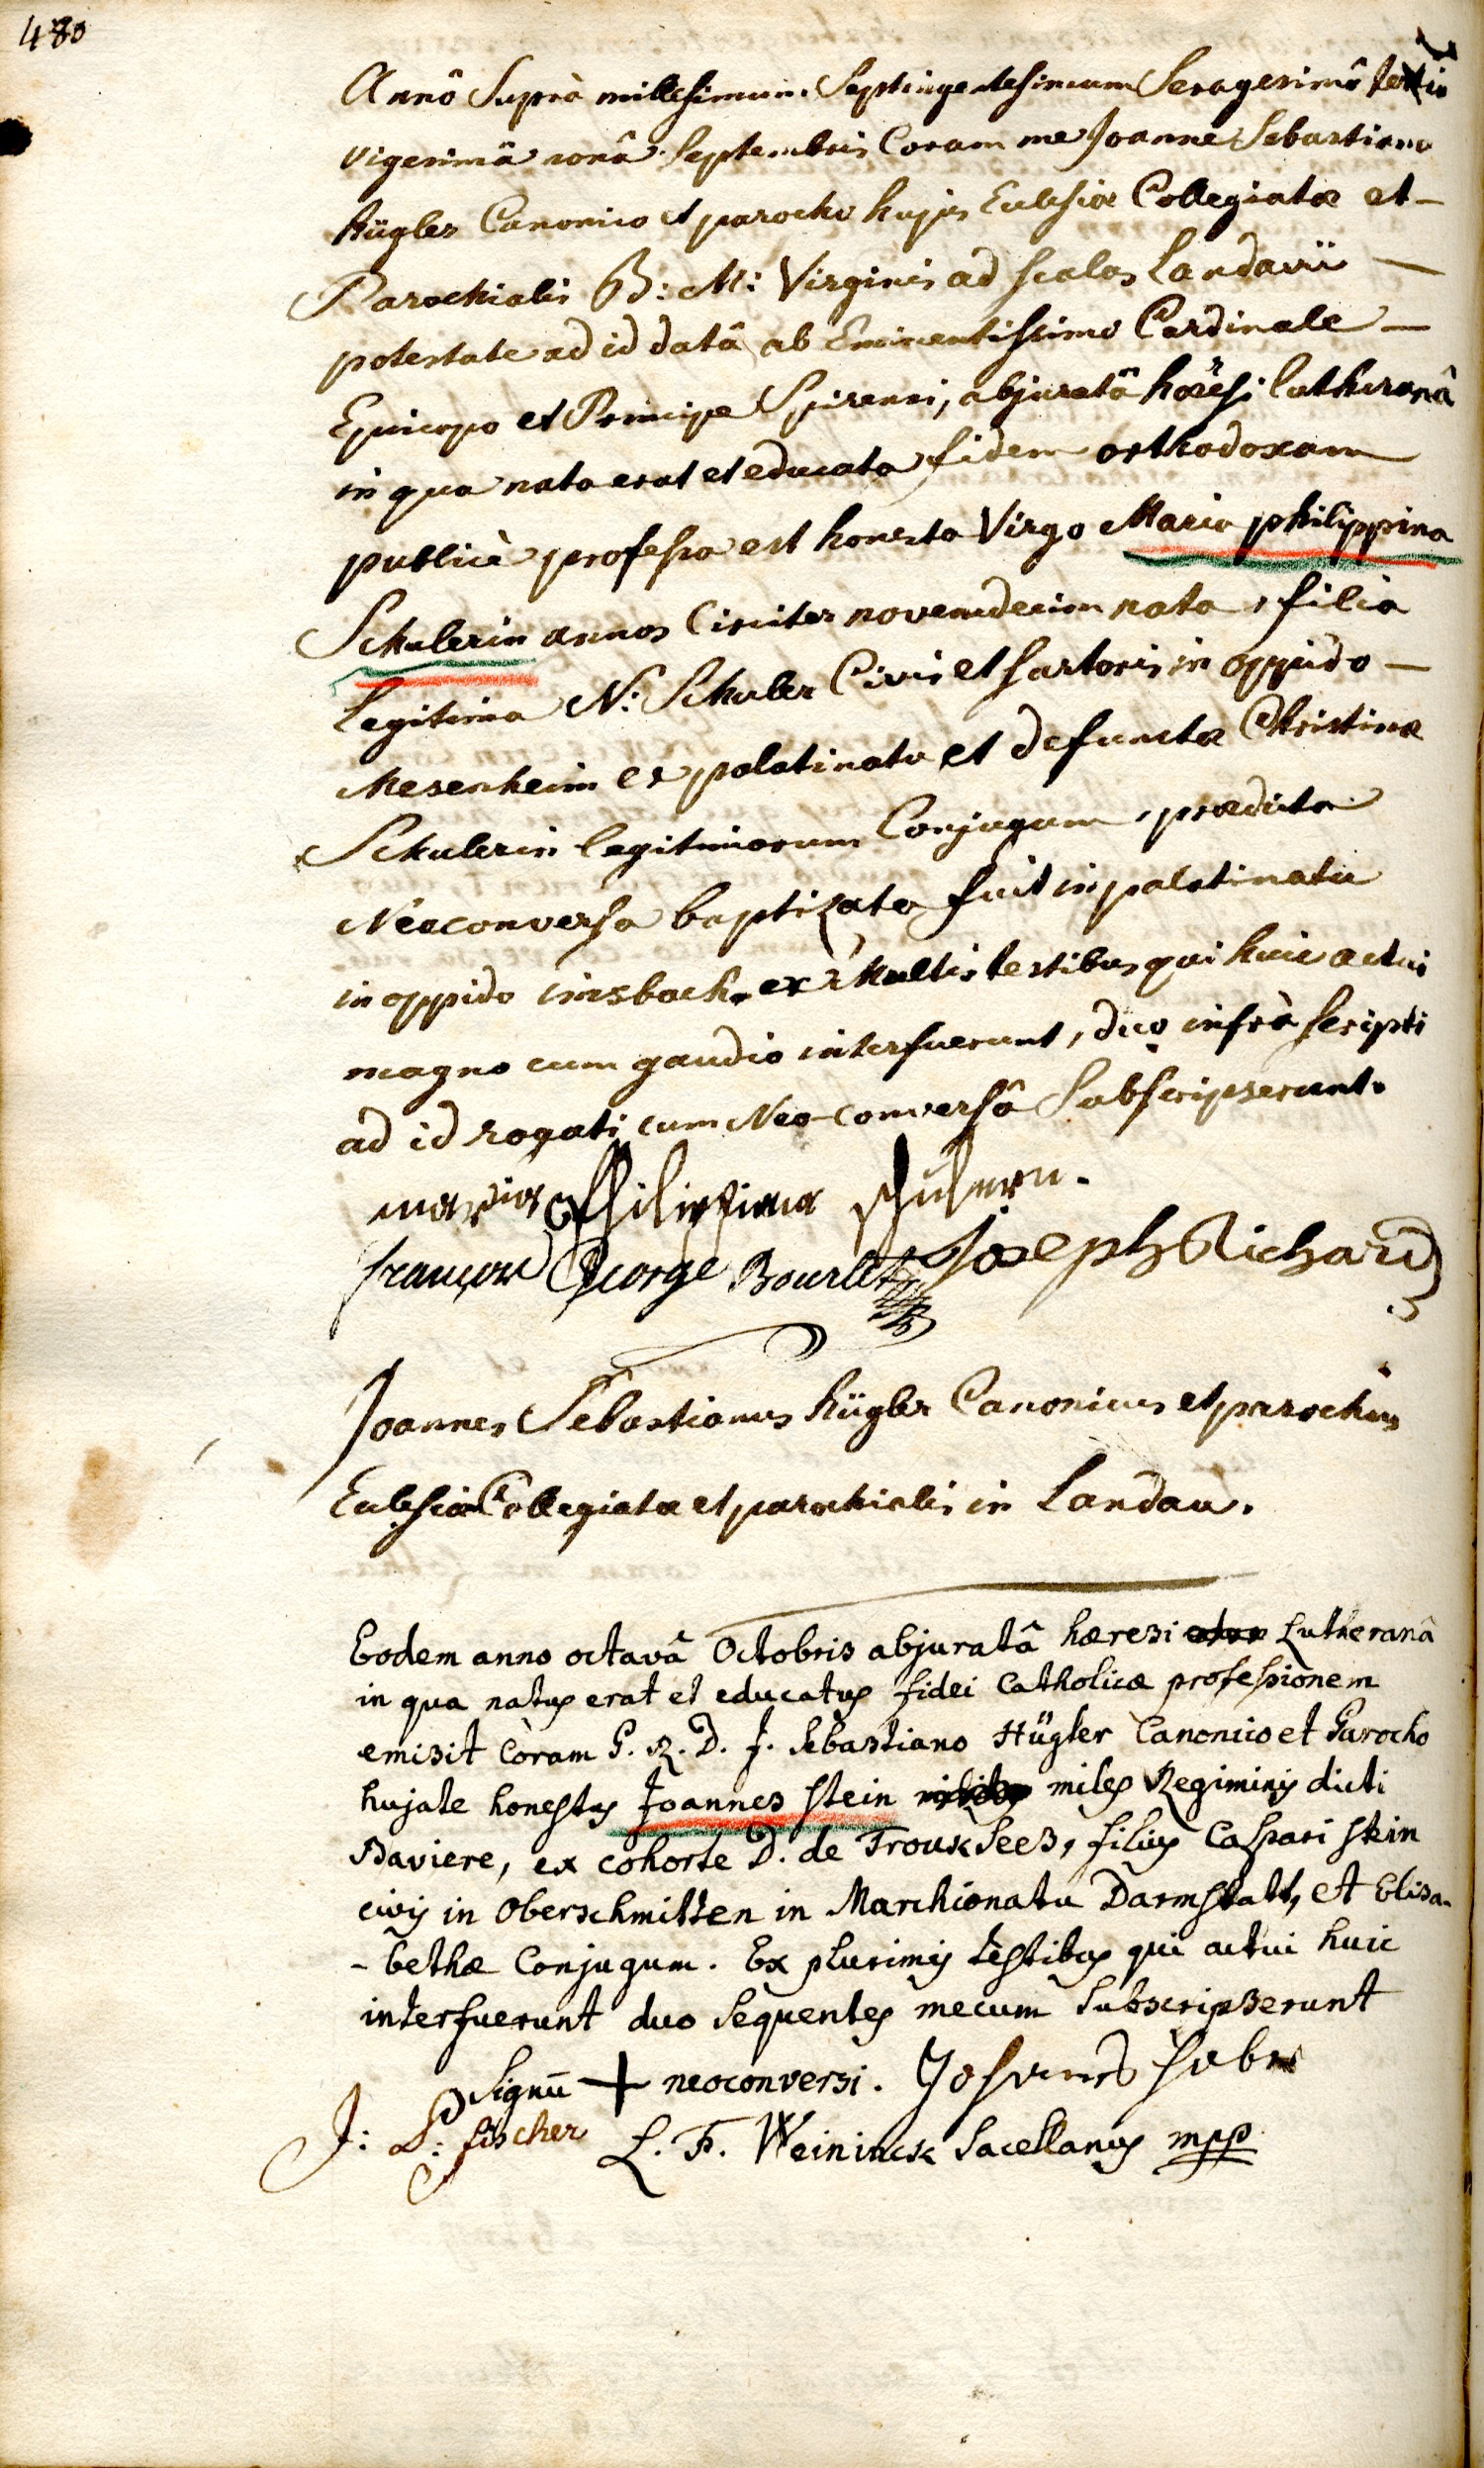 480
Annô Suprà millesimum Septingentesimum Sexagesimô tertiô
vigesimâ nonâ Septembris Coram me Joanne Sebastiano
Hügler Canonico et parocho hujus Eclesiæ Collegiatæ et
Parochialis B: M: Virginis ad scalas Landavii
potestate ad id datâ ab Eminentissimo Cardinale
Episcopo et Principe Spirensi, abjuratâ hæresi lutheranâ
in qua nata erat et educata fidem orthodoxam
publicè professa est honesta Virgo Maria philippina
Schulerin annos Circiter novemdecim nata, filia
Legitima N: Schuler Civis et sartoris in oppido
Mesenheim ex palatinatu et defunctæ Christinæ
Schulerin legitimorum Conjugum, prædicta
Neoconversa baptizata fuit in palatinatu
in oppido imsbach. ex Multis testibus qui huic actui
magno cum gaudio interfuerunt, duo infrà scripti
ad id rogati cum Neo-conversâ Subscripserunt.
maria Philippina schulerin.
françois George Bourlet Joseph Richard
Joannes Sebastianus Hügler Canonicus et parochus
Eclesiæ Collegiatæ et parochialis in Landau.
Eodem anno octavâ Octobris abjuratâ hæresi Lutheranâ
in qua natus erat et educatus fidei Catholicæ professionem
emisit Còram P. R. D. J. Sebastiano Hügler Canonico et Parocho
hujate honestus Joannes Stein miles Regiminis dicti
Baviere, ex cohorte D. de Trouksees, filius Caspari Stein
civis in Oberschmitten in Marchionatu Darmstatt, et Elisa-
- bethæ Conjugum. Ex plurimis testibus qui actui huic
interfuerunt duo Sequentes mecum Subscripserunt
Signū + neoconversi. Johannes
J: P: fischer L. F. Weininck Sacellanus mpp